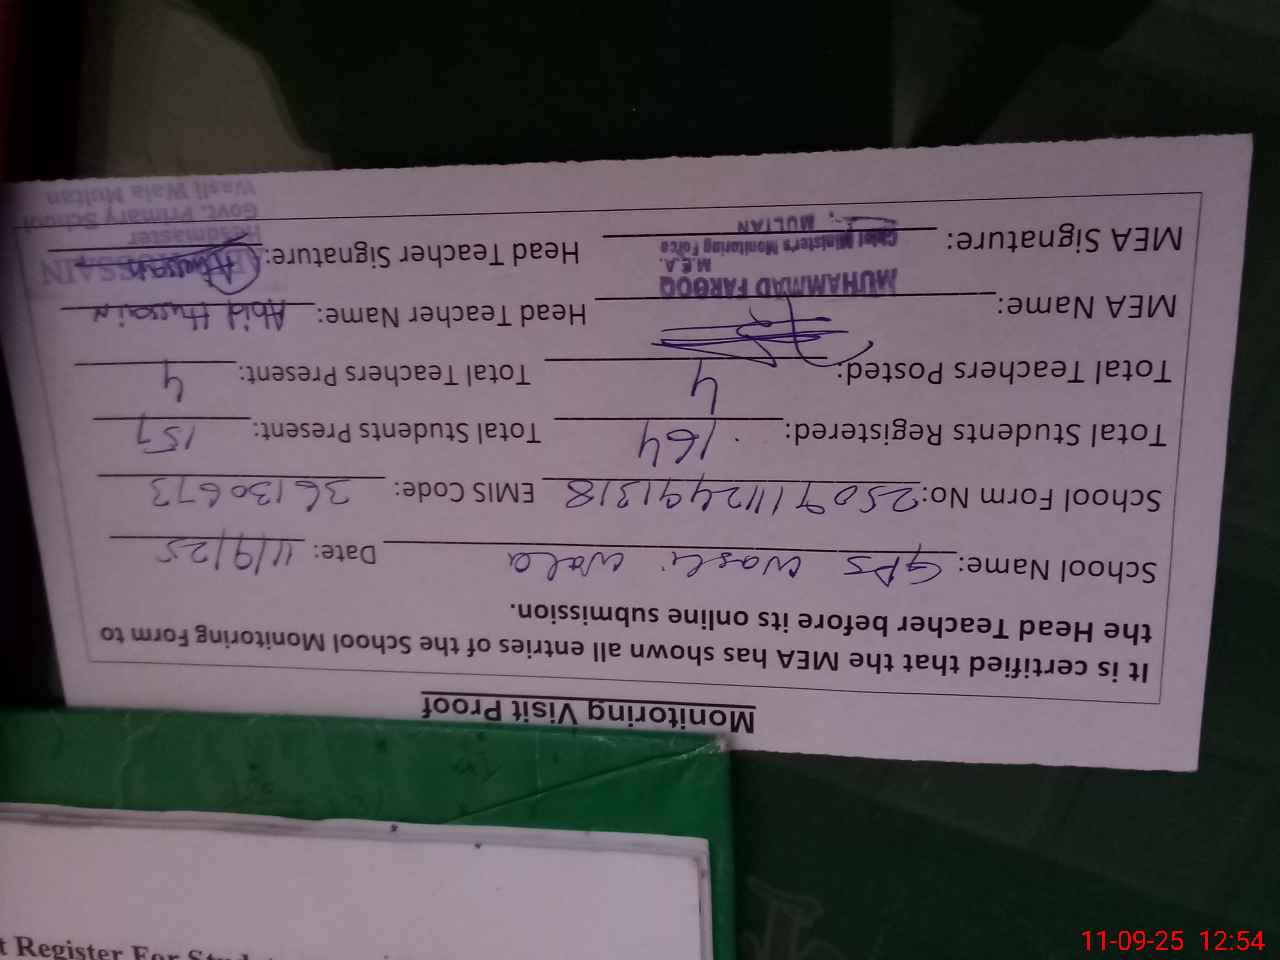 Monitoring Visit Proof
It is certified that the MEA has shown all entries of the School Monitoring Form to
the Head Teacher before its online submission.
School Name: GPS Wasli Wala Date: 11/9/25
School Form No: 25091112491318 EMIS Code: 36130673
Total Students Registered: 164 Total Students Present: 157
Total Teachers Posted: 4 Total Teachers Present: 4
MEA Name: Head Teacher Name: Abid Hussain
MUHAMMAD FAROOQ
M.E.A.
Chief Minister's Monitoring Force
MULTAN
MEA Signature: Head Teacher Signature:
HUSSAIN
Headmaster
Govt. Primary School
Wasli Wala Multan
t Register For
11-09-25 12:54